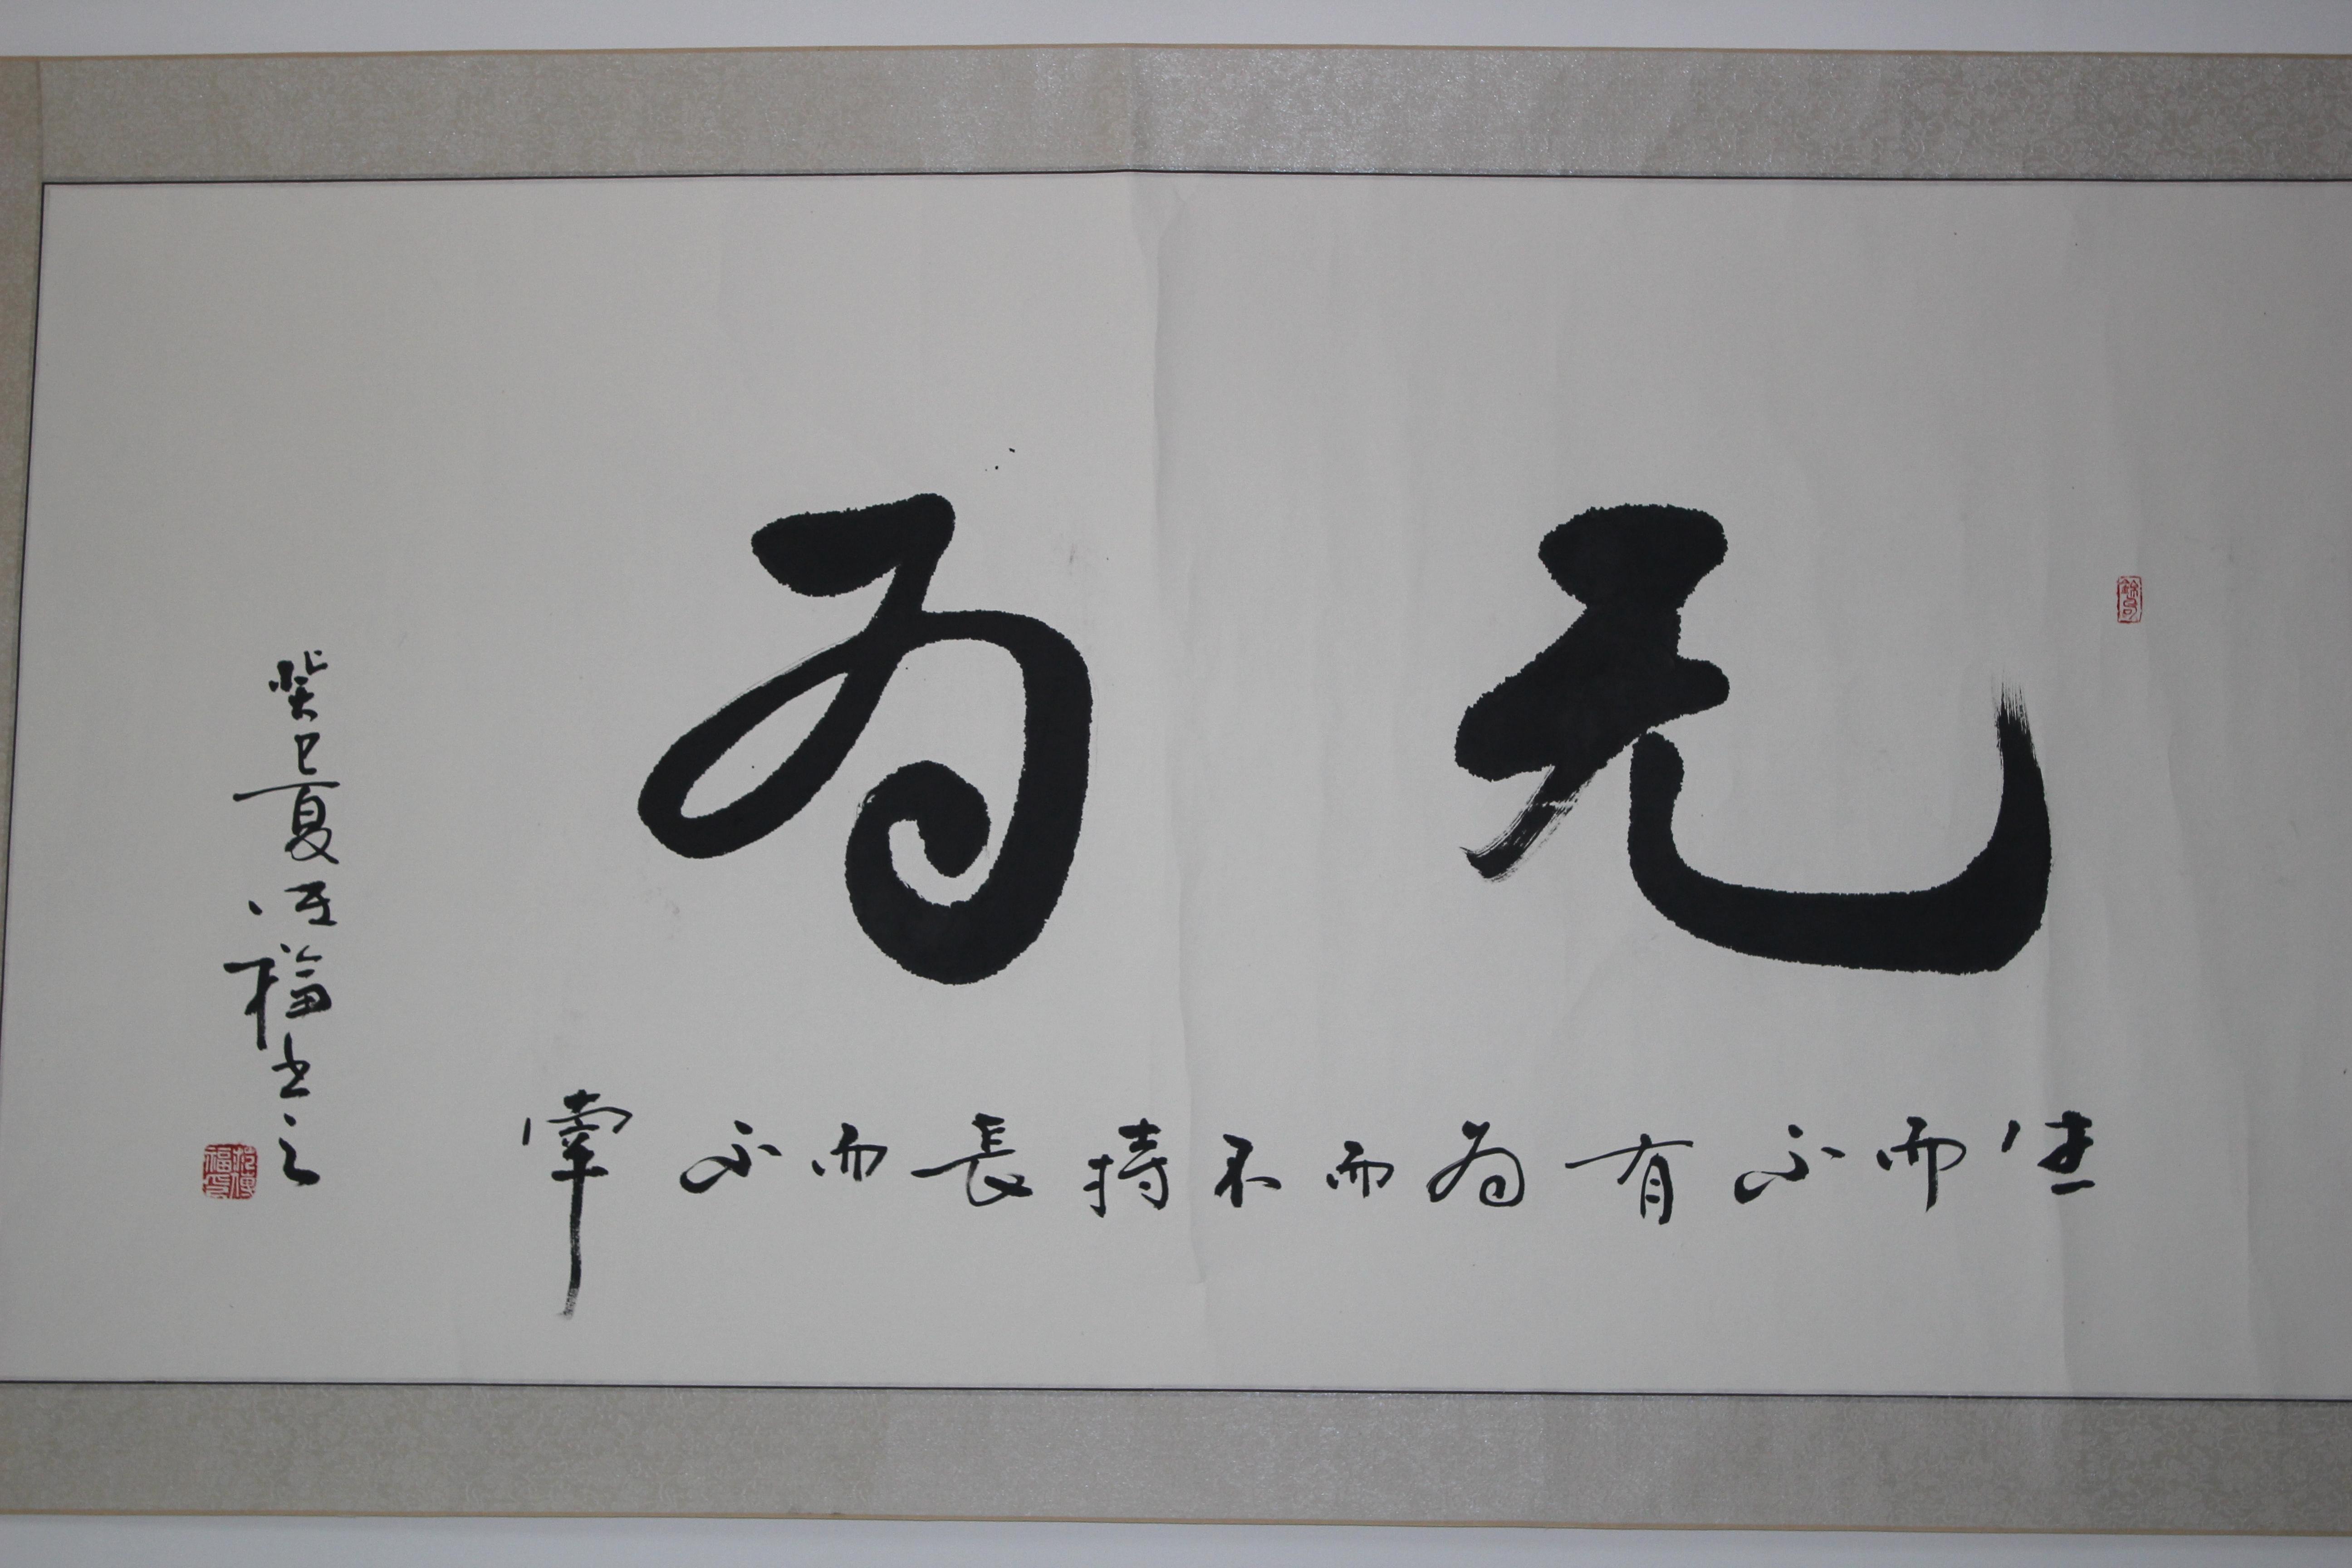 无为
生而不有为而不持長而不宰
癸巳夏
福书之